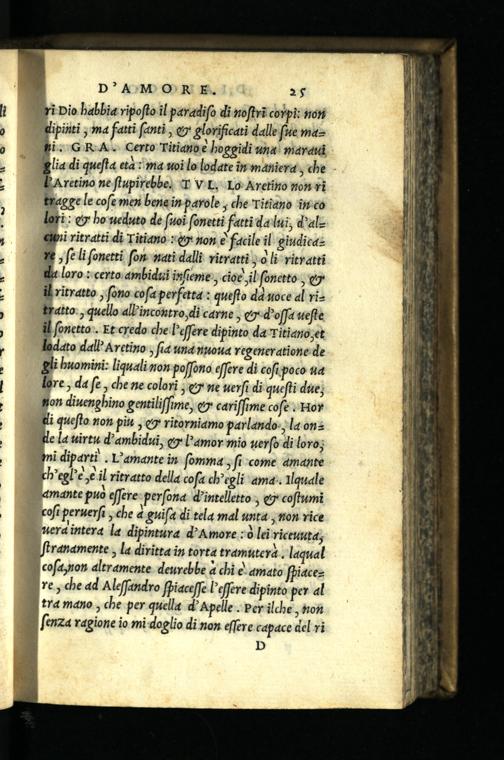 D'AMORE. 25
ri Dio habbia riposto il paradiso di nostri corpi: non
dipinti, ma fatti santi, & glorificati dalle sue ma=
ni. GRA. Certo Titiano è hoggidi una maravi
glia di questa età: ma voi lo lodate in maniera, che
l'Aretino ne stupirebbe. TVL. Lo Aretino non ri
tragge le cose men bene in parole, che Titiano in co
lori: & ho ueduto de suoi sonetti fatti da lui, d'al=
cuni ritratti di Titiano: & non è facile il giudica=
re, se li sonetti son nati dalli ritratti, ò li ritratti
da loro: certo ambidui insieme, cioè, il sonetto, &
il ritratto, sono cosa perfetta: questo dà uoce al ri=
tratto, quello all'incontro, di carne, & d'ossa ueste
il sonetto. Et credo che l'essere dipinto da Titiano, et
lodato dall'Aretino, sia una nuoua regeneratione de
gli huomini: liquali non possono essere di cosi poco ua
lore, da se, che ne colori, & ne uersi di questi due,
non diuenghino gentilissime, & carissime cose. Hor
di questo non piu, & ritorniamo parlando, la on=
de la uirtu d'ambidui, & l'amor mio uerso di loro,
mi dipartì. L'amante in somma, si come amante
ch'egl'è, è il ritratto della cosa ch'egli ama. Ilquale
amante può essere persona d'intelletto, & costumi
cosi peruersi, che à guisa di tela mal unta, non rice
uerà intera la dipintura d'Amore: ò lei riceuuta,
stranamente, la diritta in torta tramuterà. laqual
cosa, non altramente deurebbe à chi è amato spiace=
re, che ad Alessandro spiacesse l'essere dipinto per al
tra mano, che per quella d'Apelle. Per ilche, non
senza ragione io mi doglio di non essere capace del ri
D